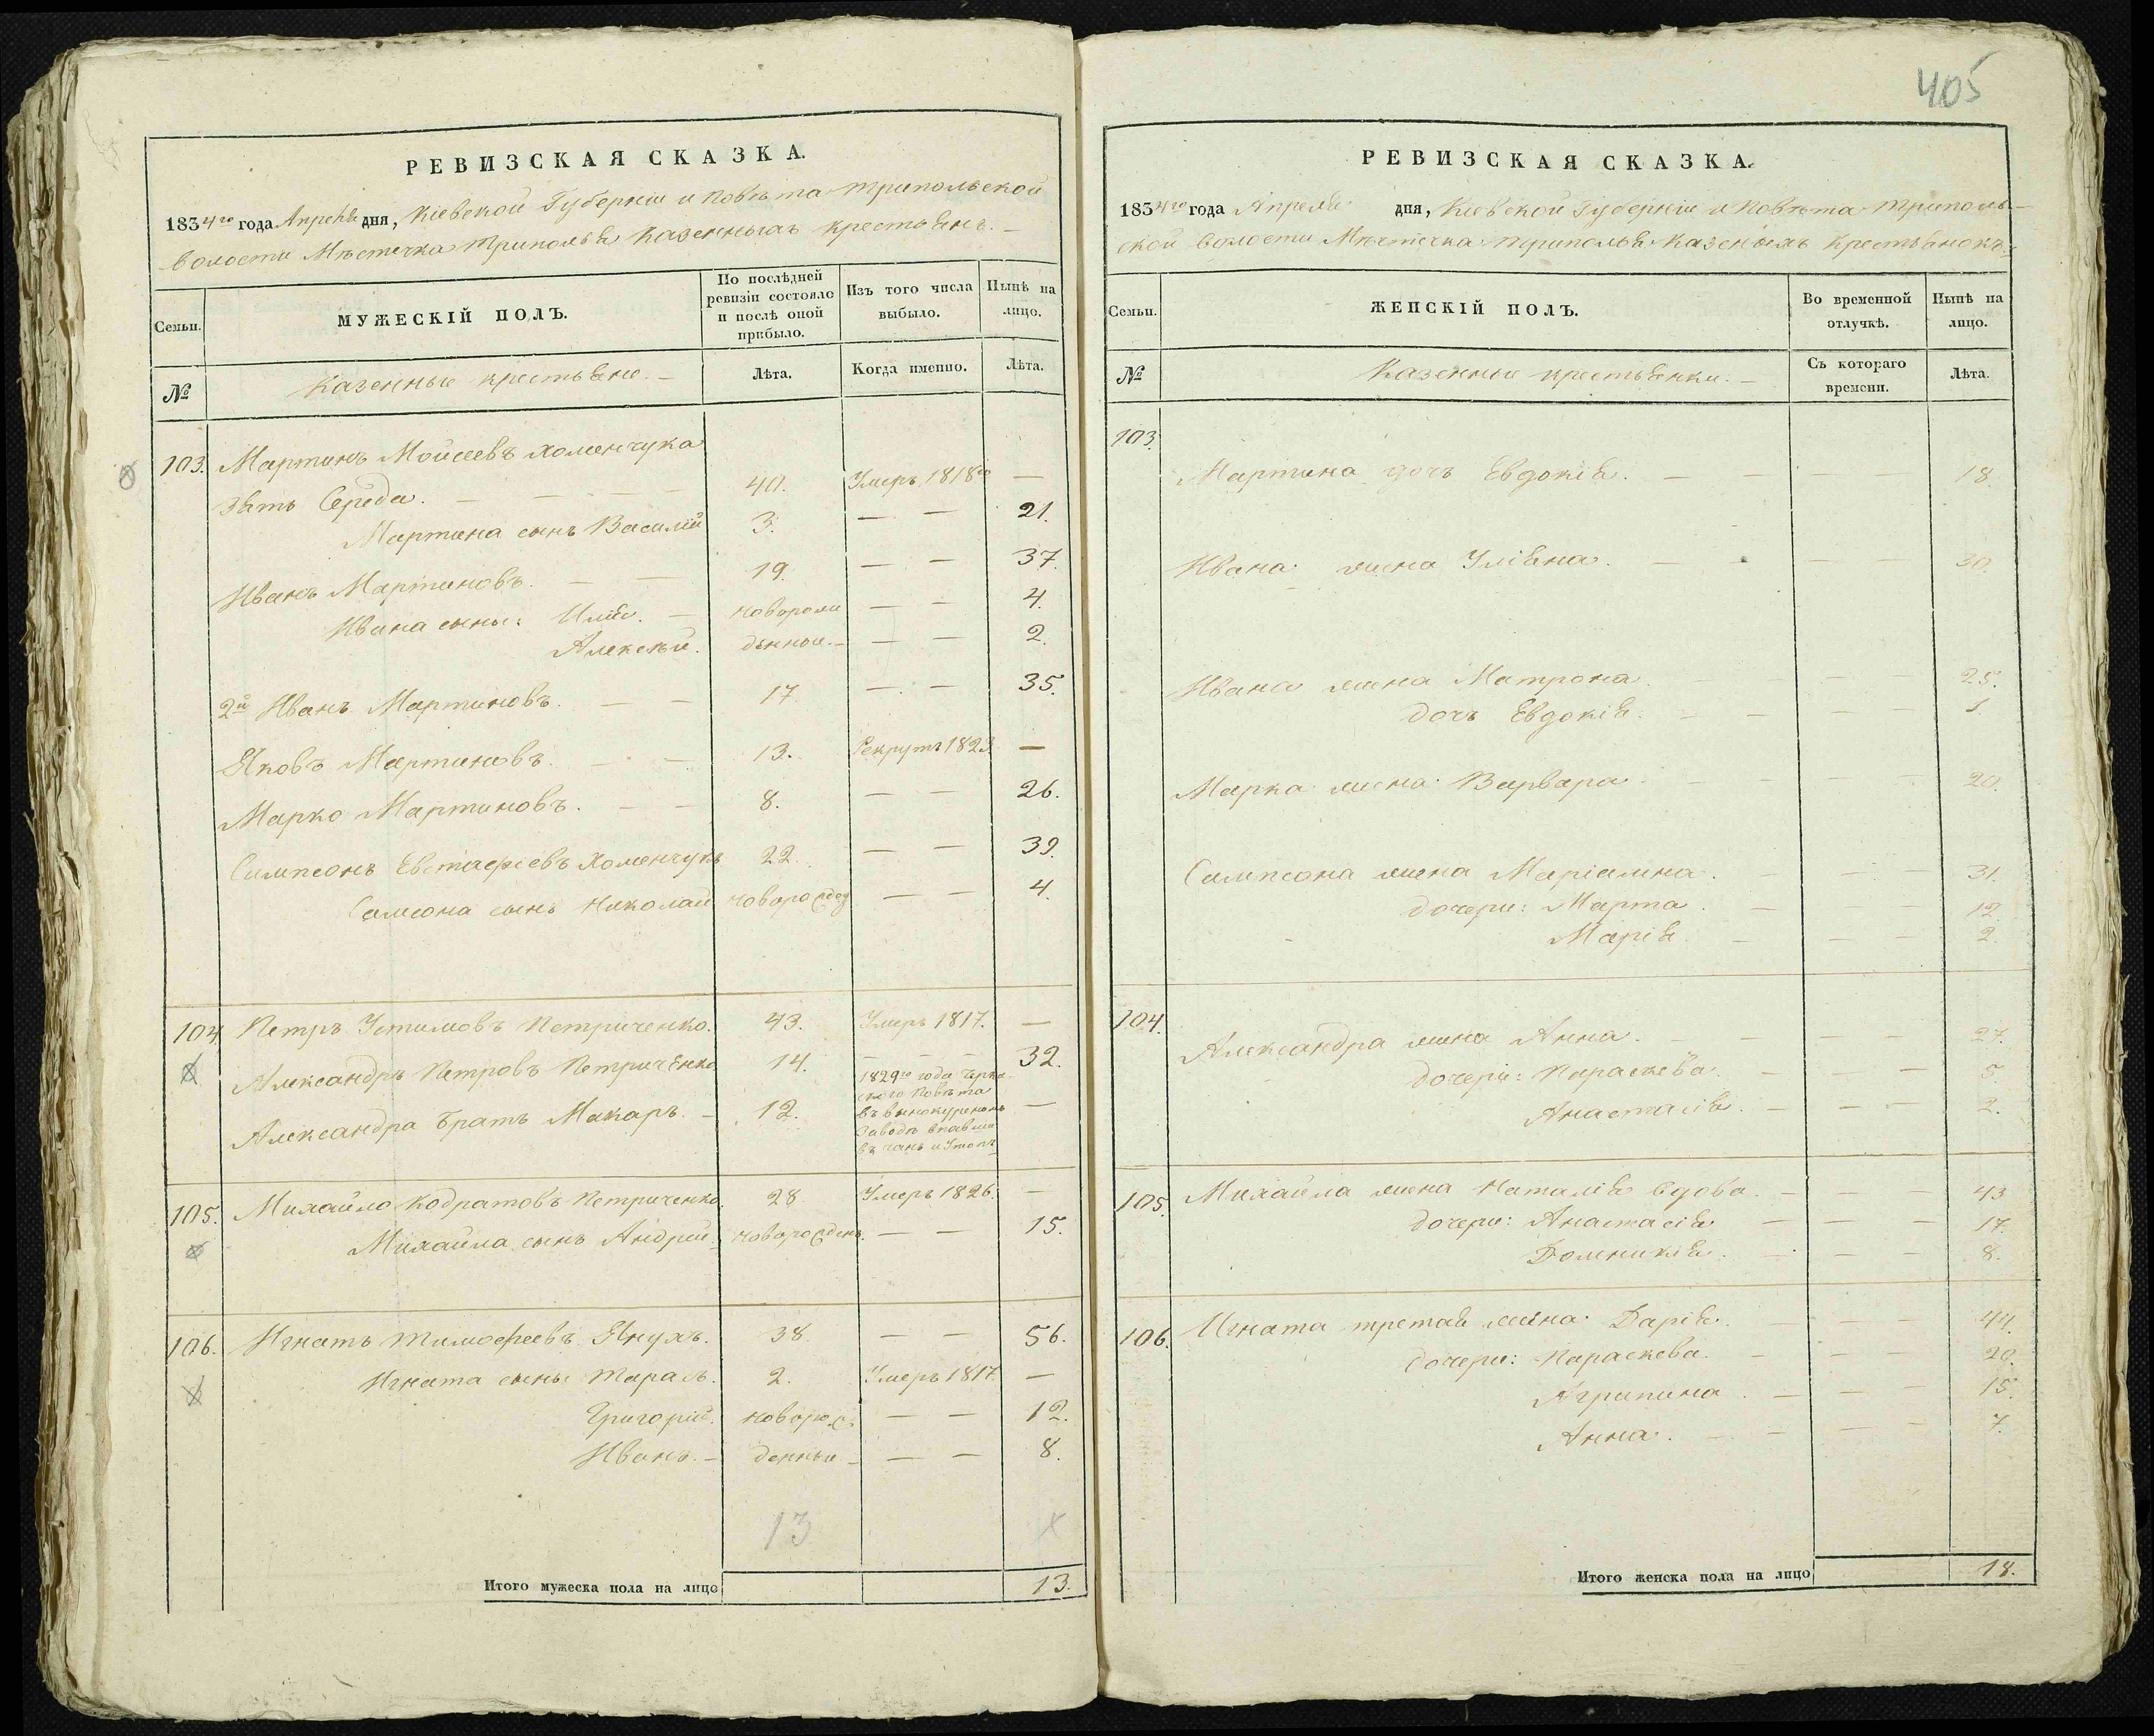 405
РЕВИЗСКАЯ СКАЗКА.
1834го года Апреля дня, Кіевской Губерніи и Повѣта Трипольской
волости Мѣстечка Триполья Казенныхъ крестьянъ. —
Семьи.
МУЖЕСКІЙ ПОЛЪ.
По послѣдней
ревизіи состояло
и послѣ оной
прибыло.
Изъ того числа
выбыло.
Нынѣ на
лицо.
№
Казенные крестьяне. —
Лѣта.
Когда именно.
Лѣта.
103. Мартинъ Мойсеевъ Хоменчука
зять Середа. — — — — 40. Умеръ 1818го —
Мартина сынъ Василій 3. — — 21.
Иванъ Мартиновъ. — — 19. — — 37.
Ивана сыны: Илія. — новорож — — 4.
Алексѣй. денные. — — — 2.
2й Иванъ Мартиновъ. — — 17. — — 35.
Яковъ Мартиновъ. — — 13. Рекрутъ 1823 —
Марко Мартиновъ. — — 8. — — 26.
Симпсонъ Евстафіевъ Хоменчукъ 22. — — 39.
Самсона сынъ Николай новорожд — — 4.
104 Петръ Устимовъ Петриченко. 43. Умеръ 1817. —
Александръ Петровъ Петриченко 14. — — — 32.
Александра братъ Макаръ. — 12.
1829го года Черка
ского Повѣта
въ винокуренномъ
Заводѣ впавши
въ чанъ и Утопъ —
105. Михайло Кодратовъ Петриченко. 28 Умеръ 1826. —
Михайла сынъ Андрей. новорожден. — — 15.
106. Игнатъ Тимофеевъ Янухъ. 38. — — 56.
Игната сыны Тарасъ. 2. Умеръ 1817. —
Григорій. новорож — — 12.
Иванъ. — денные — — — 8.
13
Итого мужеска пола на лицо 13.
РЕВИЗСКАЯ СКАЗКА.
1834го года Апреля дня, Кіевской Губерніи и Повѣта Триполь—
ской Волости Мѣстечка Триполья Казенныхъ Крестьянокъ.
Семьи.
ЖЕНСКІЙ ПОЛЪ.
Во временной
отлучкѣ.
Нынѣ на
лицо.
№
Казенные крестьянки. —
Съ котораго
времени.
Лѣта.
103.
Мартина дочь Евдокія. — — — 18.
Ивана жена Уліяна. — — — — 30.
Ивана жена Матрона. — — — — 25.
дочь Евдокія. — — — — 1
Марка жена Варвара. — — — 20.
Сампсона жена Маріамна. — — — 31.
дочери: Марта. — — — 12.
Марія. — — — 2.
104. Александра жена Анна. — — — — 27.
дочери: Параскева. — — — 5.
Анастасія. — — — 2.
105. Михайла жена Наталія вдова. — — — 43
дочери: Анастасія — — — 17.
Домникія. — — — 8.
106. Игната третая жена Дарія. — — — 44.
дочери: Параскева. — — — 20.
Агрипина. — — — 15.
Анна. — — — — 7.
Итого женска пола на лицо 18.